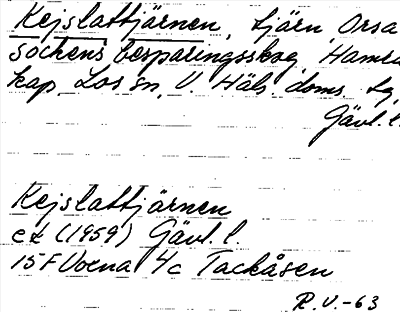 Kejslattjärnen, tjärn, Orsa
sockens besparingsskog, Hamra
kap. Los sn, V. Häls. doms. tg,
Gävl. l.
Kejslattjärnen
ek (1959) Gävl. l.
15F Voxna 4c Tackåsen
R.V.-63